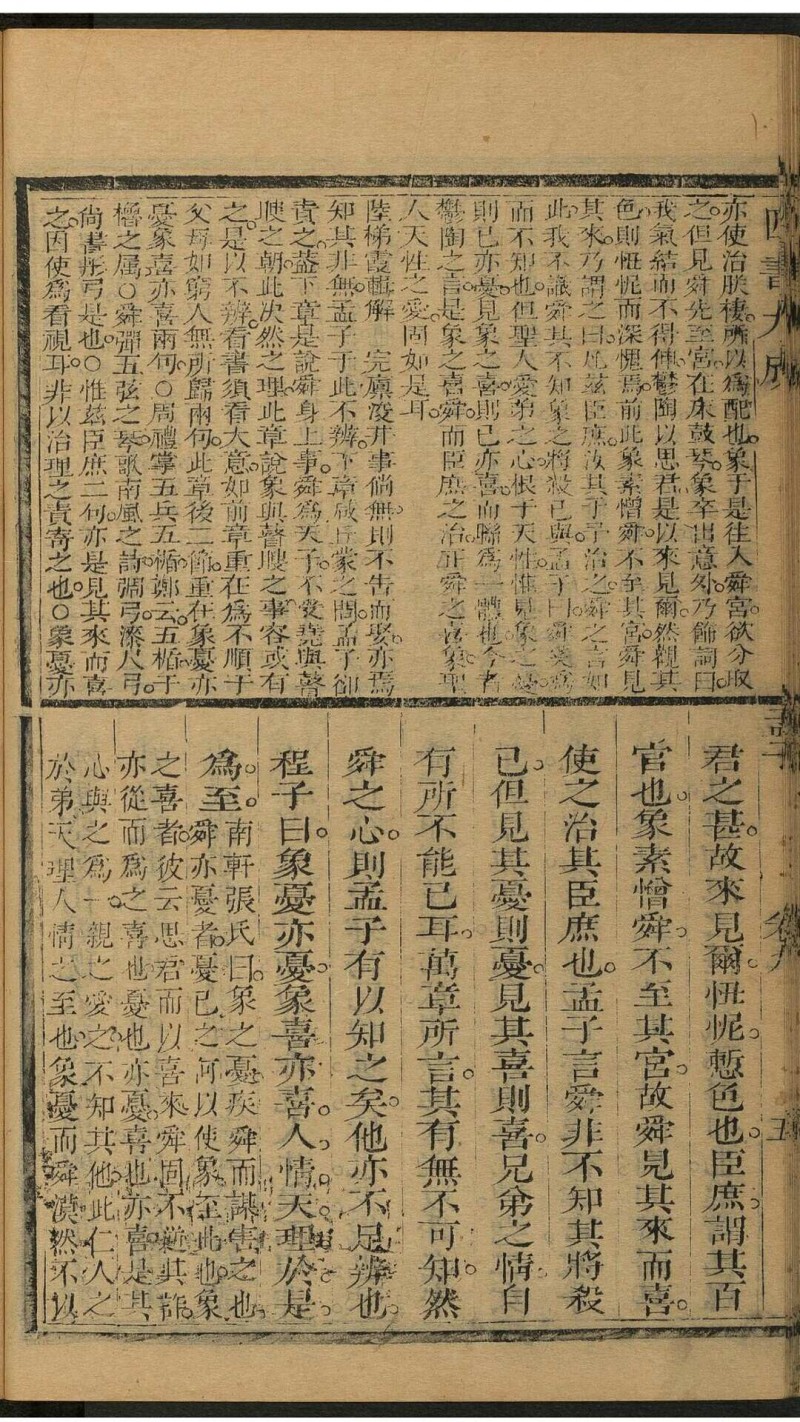 亦使治朕棲所以爲配也象于是往入舜宮欲分取
之但見舜先至宮在床鼓琴象卒出意外乃飾詞曰
我氣結而不得伸鬱陶以思君是以來見爾然觀其
色則忸怩而深愧焉前此象素憎舜不至其宮舜見
其來乃謂之曰凡茲臣庶汝其于予治之舜之言如
此我不識舜其不知象之將殺已與孟子曰舜奚爲
而不知也但聖人愛弟之心恨于天性惟見象之憂
則已亦憂見象之喜則已亦喜而聯爲一體也今者
鬱陶之言是象之喜舜而臣庶之治正舜之喜象聖
人天性之愛固如是耳
陸梯霞輯解 完廩浚井事倘無則不告而娶亦焉
知其非無孟子于此不辨下章咸丘蒙之問孟子卻
責之蓋下章是說舜身上事舜爲天子不受堯與瞽
瞍之朝此决然之理此章說象與瞽瞍之事容或有
之是以不辨看書須看大意如前章重在爲不順于
父母如窮人無所歸兩句此章後二節重在象憂亦
憂象喜亦喜兩句○周禮掌五兵五楯鄭云五楯于
櫓之屬○舜彈五弦之琴歌南風之詩弴弓漆尺弓
尚書彤弓是也○惟茲臣庶二句亦是見其來而喜
之因使爲看視耳非以治理之責寄之也○象憂亦
君之甚故來見爾忸怩慙色也臣庶謂其百
官也象素憎舜不至其宮故舜見其來而喜
使之治其臣庶也孟子言舜非不知其將殺
已但見其憂則憂見其喜則喜兄弟之情自
有所不能已耳萬章所言其有無不可知然
舜之心則孟子有以知之矣他亦不足辨也
程子曰象憂亦憂象喜亦喜人情天理於是
爲至南軒張氏曰象之憂疾舜而謀害之也
舜亦憂者憂已之何以使象至此也象
之喜者彼云思君而以喜來舜固不逆其詐
亦從而爲之喜也憂也亦憂喜也亦喜是其
心與之爲一親之愛之不知其他此仁人之
於弟天理人情之至也象憂而舜漠然不以
四書大成
孟子
卷九
五